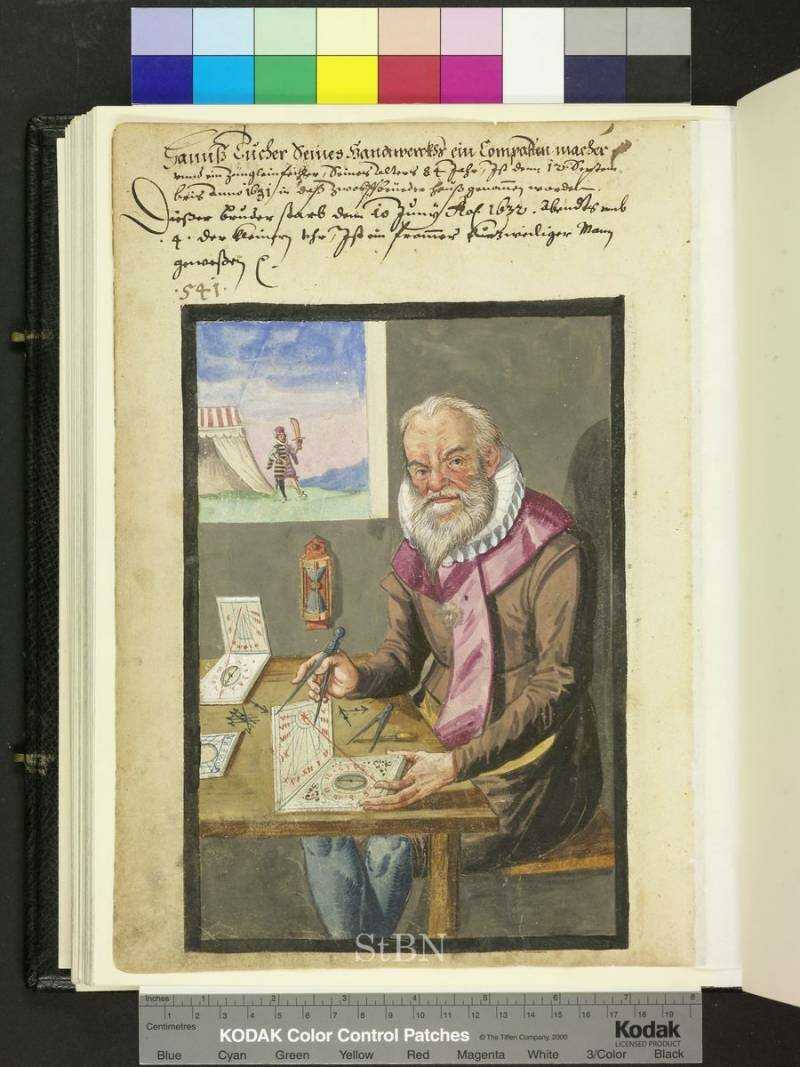 Hannß Tucher Seines Handtwerckhs ein Compasten macher
vnnd ein Zungleinfechter, Seines alters 84 Jahr, Ist denn 12 Septem
bris Anno 1631 in daß Zwölffbrüeder hauß genommen worden.
Dießer bruder starb denn 10 Junÿ A° 1632. Abendts vmb
.4. der kleinern Vhr, Ist ein frommer kurtzweiliger Mann
geweßen
.541.
StBN
Inches 1 2 3 4 5 6 7 8
Centimetres 1 2 3 4 5 6 7 8 9 10 11 12 13 14 15 16 17 18 19
KODAK Color Control Patches © The Tiffen Company, 2000 Kodak
LICENSED PRODUCT
Blue Cyan Green Yellow Red Magenta White 3/Color Black